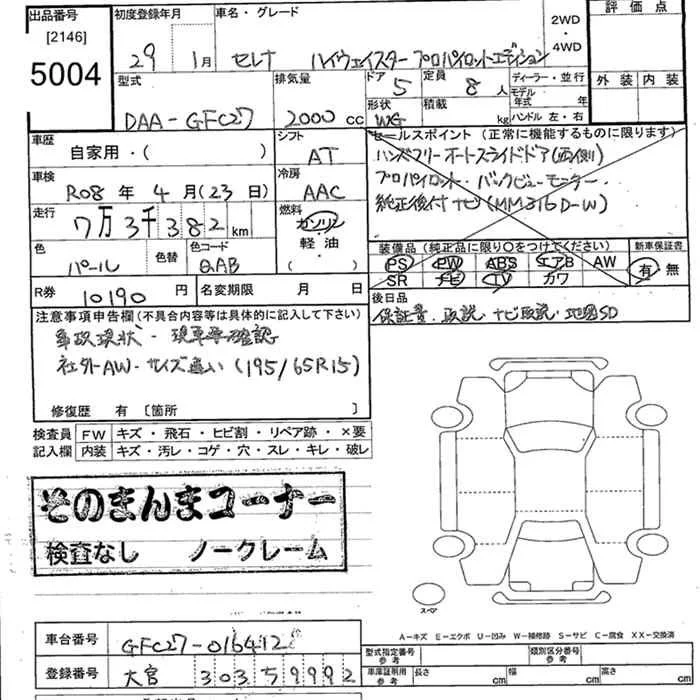 出品番号
[2146]
5004
初度登録年月
29 1月
車名・グレード
セレナ ハイウェイスター プロパイロットエディション
2WD
・
4WD
評価点
外装 内装
型式
DAA-GFC27
排気量
2000 cc
ドア
5
定員
8人
形状
WG
積載
kg
ディーラー・並行
モデル
年式 年
ハンドル 左・右
車歴
自家用・( )
シフト
AT
車検
R08年 4月(23日)
冷房
AAC
走行
7万3千382km
燃料
ガソリン
軽油
( )
色
パール
色替
色コード
QAB
R券
10190円
名変期限 月 日
セールスポイント (正常に機能するものに限ります)
ハンズフリーオートスライドドア(両側)
プロパイロット・バックビューモニター・
純正後付ナビ(MM316D-W)
装備品 (純正品に限り○をつけてください)
PS PW ABS エアB AW
SR ナビ TV カワ
新車保証書
有・無
後日品
保証書.取説.ナビ取説.地図SD
注意事項申告欄(不具合内容等は具体的に記入して下さい)
事故現状・現車要確認
社外AW・サイズ違い(195/65R15)
修復歴 有 〔箇所 〕
検査員 FW キズ・飛石・ヒビ割・リペア跡・×要
記入欄 内装 キズ・汚レ・コゲ・穴・スレ・キレ・破レ
そのまんまコーナー
検査なし ノークレーム
スペア
A-キズ E-エクボ U-凹み W-補修跡 S-サビ C-腐食 XX-交換済
車台番号
GFC27-016412
登録番号
大宮 303 59992
型式指定番号
参考
類別区分番号
参考
車庫証明用
参考
長さ cm 幅 cm 高さ cm